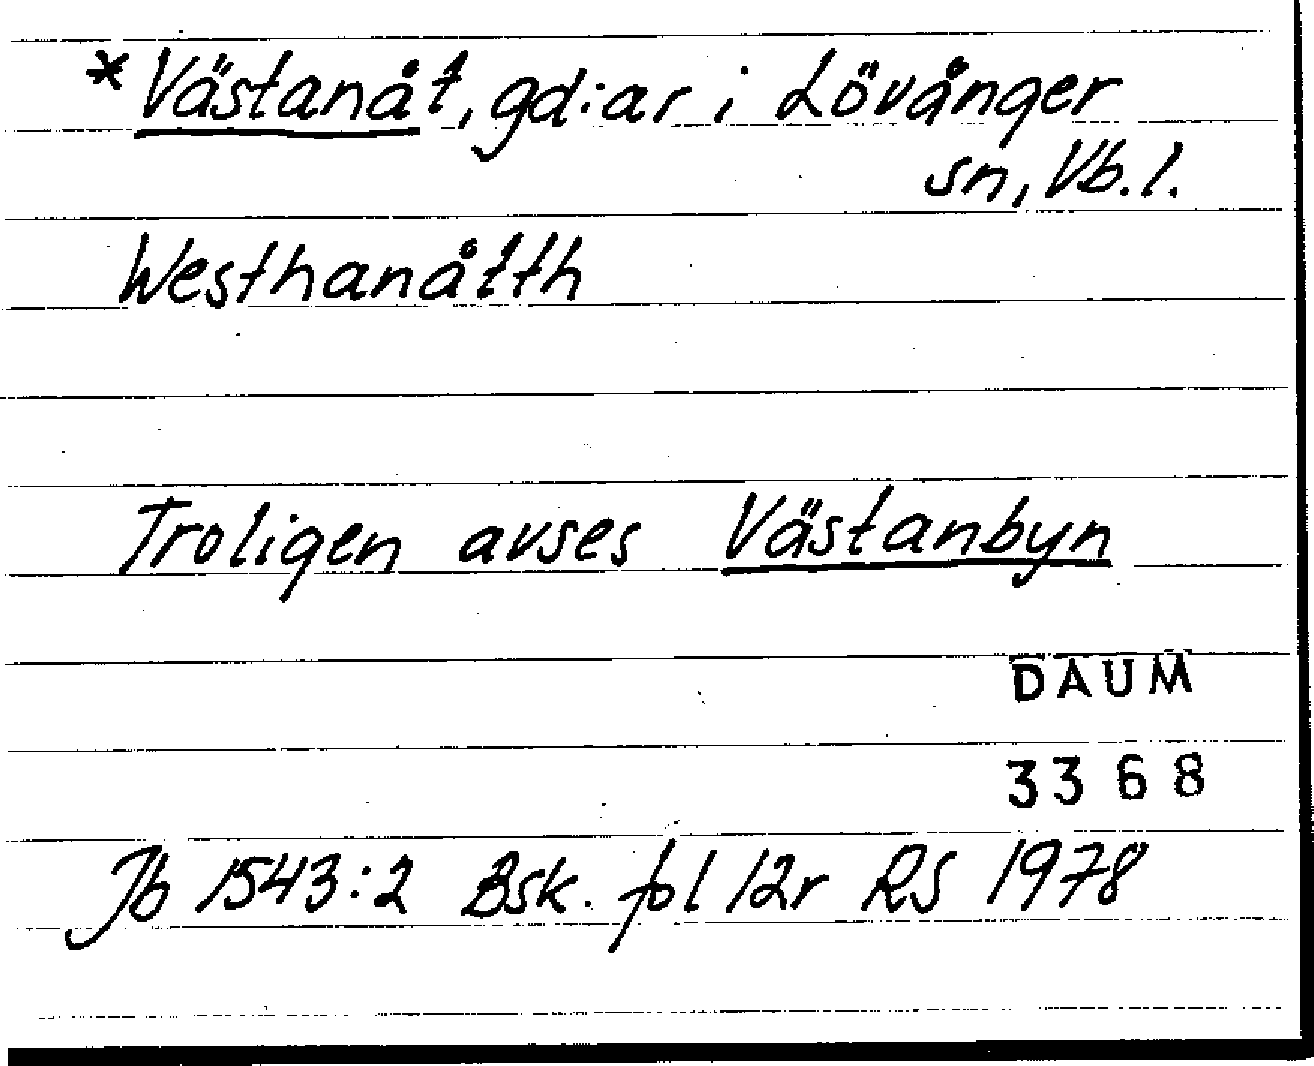 *Västanåt, gd:ar i Lövånger
sn, Vb.l.
Westhanåtth
Troligen avses Västanbyn
DAUM
3368
Jb 1543:2 Bsk. fol 12r RS 1978